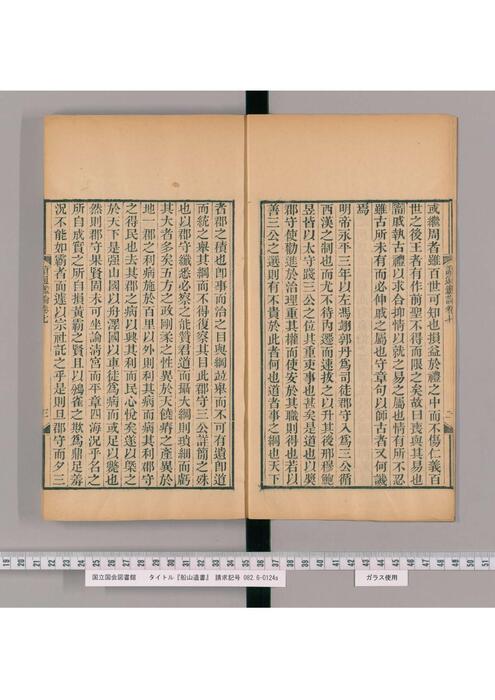 或繼周者雖百世可知也損益於禮之中而不傷仁義百
世之後王者有作前聖不得而限之矣故曰喪與其易也
寧戚執古禮以求合抑情以就之易之屬也情有所不忍
雖古所未有而必伸戚之屬也守章句以師古者又何譏
焉
明帝永平三年以左馮翊郭丹爲司徒郡守入爲三公循
西漢之制也而尤不待內遷而速拔之以升其後邢穆鮑
昱皆以太守踐三公之位其重吏事也甚矣是道也以獎
郡守使勸進於治理重其權而使安於其職則得也若以
善三公之選則有不貴於此者何也道者事之綱也天下
者郡之積也卽事而治之目與綱竝舉而不可有遺卽道
而統之舉其綱而不得復察其目此郡守三公詳簡之殊
也以郡守纖悉必察之能贊君道而攝大綱則瑣細而虧
其大者多矣五方之政剛柔之性異於天饒瘠之產異於
地一郡之利病施於百里以外則利其病而病其利郡守
之得民也去其郡之病以興其利而民心悅矣遂以槩之
於天下是強山國以舟澤國以車徒爲病而或足以斃也
然則郡守果賢固未可坐論清宮而平章四海況乎名之
所自成實之所自損黃霸之賢且以鶡雀之欺爲鼎足羞
況不能如霸者而遽以宗社託之乎是則旦郡守而夕三
國立国会図書館 タイトル『船山遺書』 請求記号 082.6-0124s ガラス使用